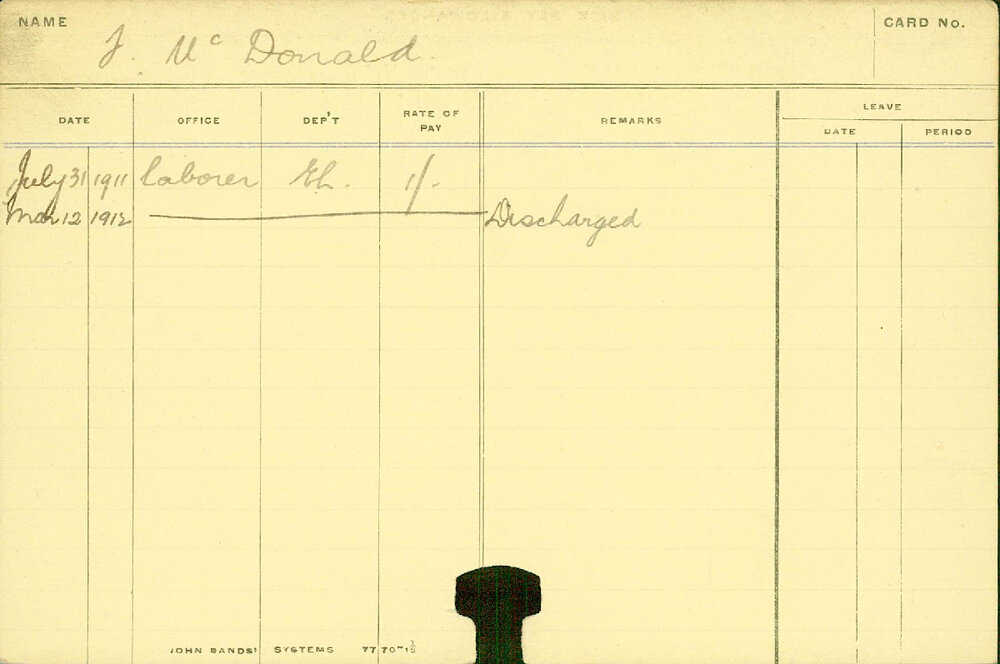 NAME
CARD No.
J. McDonald.
LEAVE
DATE OFFICE DEP'T RATE OF PAY REMARKS DATE PERIOD
July 31 1911 laborer El. 1/-
Mar 12 1912 Discharged
JOHN SANDS' SYSTEMS 7770-